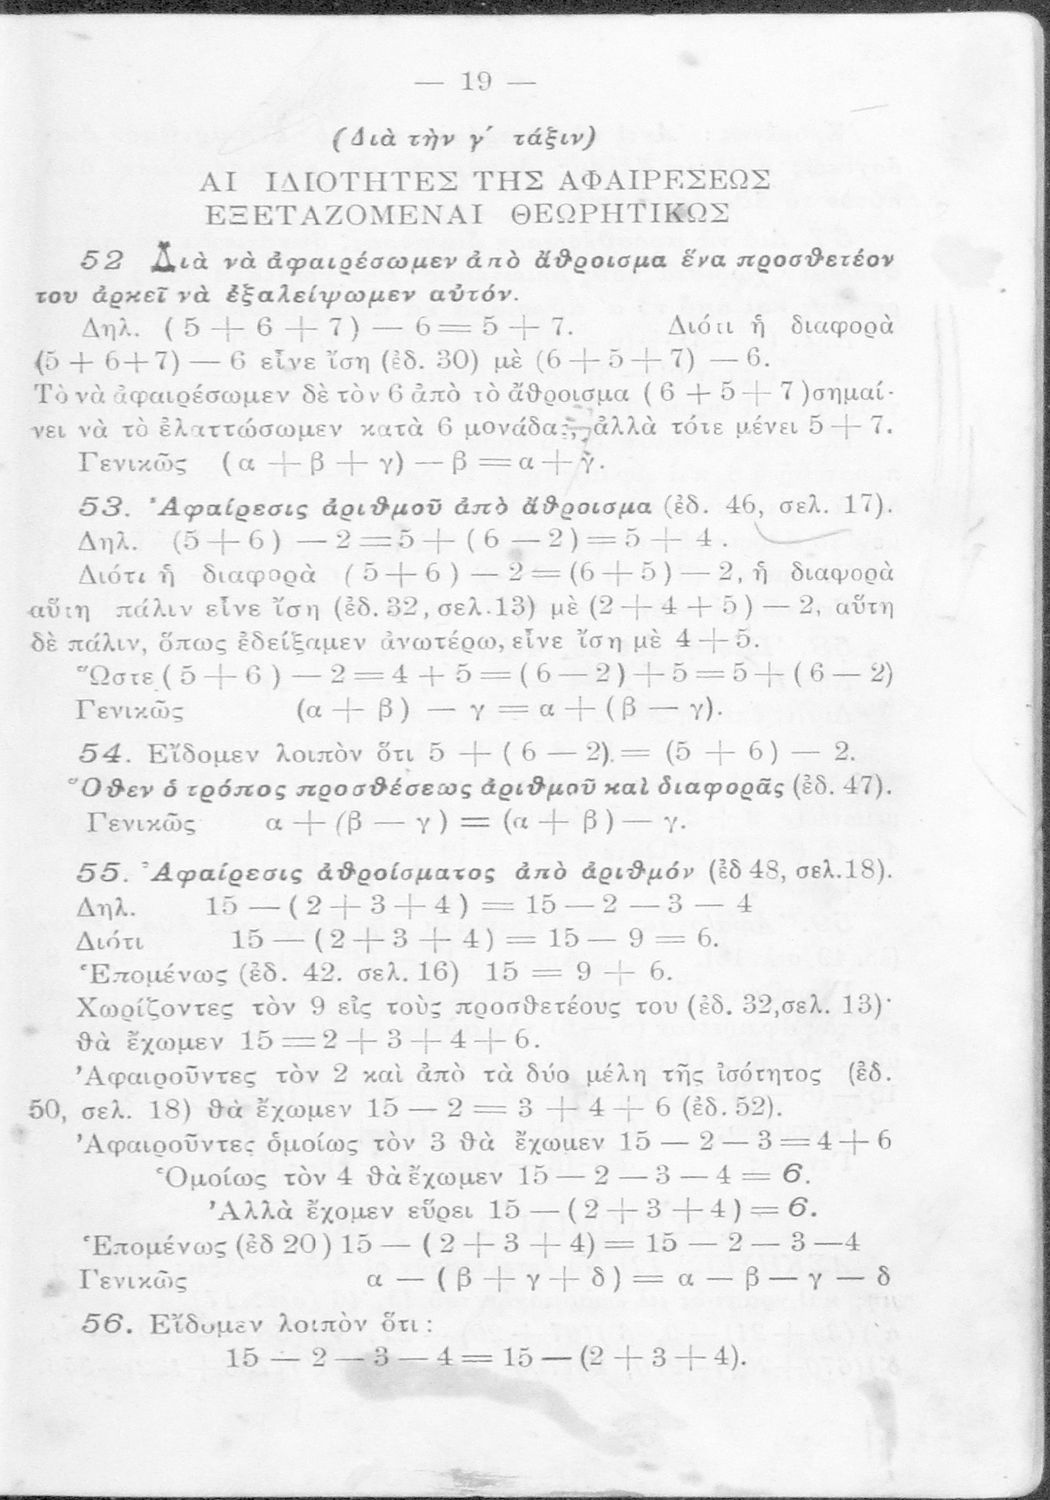 — 19 —
(Διὰ τὴν γ΄ τάξιν)
ΑΙ ΙΔΙΟΤΗΤΕΣ ΤΗΣ ΑΦΑΙΡΕΣΕΩΣ
ΕΞΕΤΑΖΟΜΕΝΑΙ ΘΕΩΡΗΤΙΚΩΣ
52 Διὰ νὰ ἀφαιρέσωμεν ἀπὸ ἄθροισμα ἕνα προσθετέον
του ἀρκεῖ νὰ ἐξαλείψωμεν αὐτόν.
Δηλ. (5 + 6 + 7) — 6 = 5 + 7. Διότι ἡ διαφορὰ
(5 + 6+7) — 6 εἶνε ἴση (ἐδ. 30) μὲ (6 + 5 + 7) — 6.
Τὸ νὰ ἀφαιρέσωμεν δὲ τὸν 6 ἀπὸ τὸ ἄθροισμα (6 + 5 + 7) σημαί-
νει νὰ τὸ ἐλαττώσωμεν κατὰ 6 μονάδας, ἀλλὰ τότε μένει 5 + 7.
Γενικῶς (α + β + γ) — β = α + γ.
53. Ἀφαίρεσις ἀριθμοῦ ἀπὸ ἄθροισμα (ἐδ. 46, σελ. 17).
Δηλ. (5 + 6) — 2 = 5 + (6 — 2) = 5 + 4.
Διότι ἡ διαφορὰ (5 + 6) — 2 = (6 + 5) — 2, ἡ διαφορὰ
αὕτη πάλιν εἶνε ἴση (ἐδ. 32, σελ. 13) μὲ (2 + 4 + 5) — 2, αὕτη
δὲ πάλιν, ὅπως ἐδείξαμεν ἀνωτέρω, εἶνε ἴση μὲ 4 + 5.
Ὥστε (5 + 6) — 2 = 4 + 5 = (6 — 2) + 5 = 5 + (6 — 2)
Γενικῶς (α + β) — γ = α + (β — γ).
54. Εἴδομεν λοιπὸν ὅτι 5 + (6 — 2). = (5 + 6) — 2.
Ὅθεν ὁ τρόπος προσθέσεως ἀριθμοῦ καὶ διαφορᾶς (ἐδ. 47).
Γενικῶς α + (β — γ) = (α + β) — γ.
55. Ἀφαίρεσις ἀθροίσματος ἀπὸ ἀριθμόν (ἐδ 48, σελ. 18).
Δηλ. 15 — (2 + 3 + 4) = 15 — 2 — 3 — 4
Διότι 15 — (2 + 3 + 4) = 15 — 9 = 6.
Ἑπομένως (ἐδ. 42. σελ. 16) 15 = 9 + 6.
Χωρίζοντες τὸν 9 εἰς τοὺς προσθετέους του (ἐδ. 32, σελ. 13)·
θὰ ἔχωμεν 15 = 2 + 3 + 4 + 6.
Ἀφαιροῦντες τὸν 2 καὶ ἀπὸ τὰ δύο μέλη τῆς ἰσότητος (ἐδ.
50, σελ. 18) θὰ ἔχωμεν 15 — 2 = 3 + 4 + 6 (ἐδ. 52).
Ἀφαιροῦντες ὁμοίως τὸν 3 θὰ ἔχωμεν 15 — 2 — 3 = 4 + 6
Ὁμοίως τὸν 4 θὰ ἔχωμεν 15 — 2 — 3 — 4 = 6.
Ἀλλὰ ἔχομεν εὕρει 15 — (2 + 3 + 4) = 6.
Ἑπομένως (ἐδ 20) 15 — (2 + 3 + 4) = 15 — 2 — 3 — 4
Γενικῶς α — (β + γ + δ) = α — β — γ — δ
56. Εἴδομεν λοιπὸν ὅτι:
15 — 2 — 3 — 4 = 15 — (2 + 3 + 4).